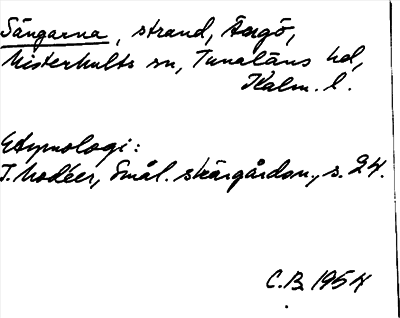 Sängarna, strand, Äsgö,
Misterhults sn, Tunaläns hd,
Kalm. l.
Etymologi:
I. Modéer, Smål. skärgårdsn., s. 24.
C.B. 1954